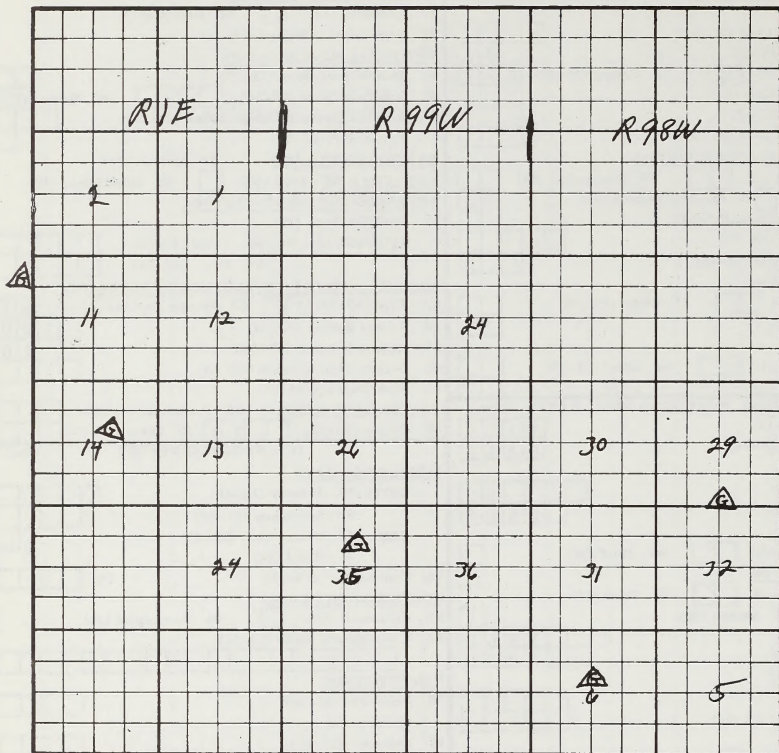 R1E R99W R98W
2 1
G
11 12 24
G
14 13 26 30 29
G
G
24 35 36 31 32
G
6 5